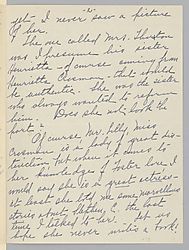 -2-
yet - I never saw a picture
of her.
The one called Mrs. Thurston
was I presume his sister
Henrietta - of course coming from
Henrietta Crosman - that would
be authentic. She was the sister
who always wanted to
him. Does she not look the
part?
Of course Mr. Lilly, Miss
Crosman is a lady of great dis-
tinction, but when it comes to
her knowledge of Foster lore I
would say she is a great actress -
at least she told me some marvellous
stories about Stephen C. the last
time I talked to her. Let us
hope she never writes a book!